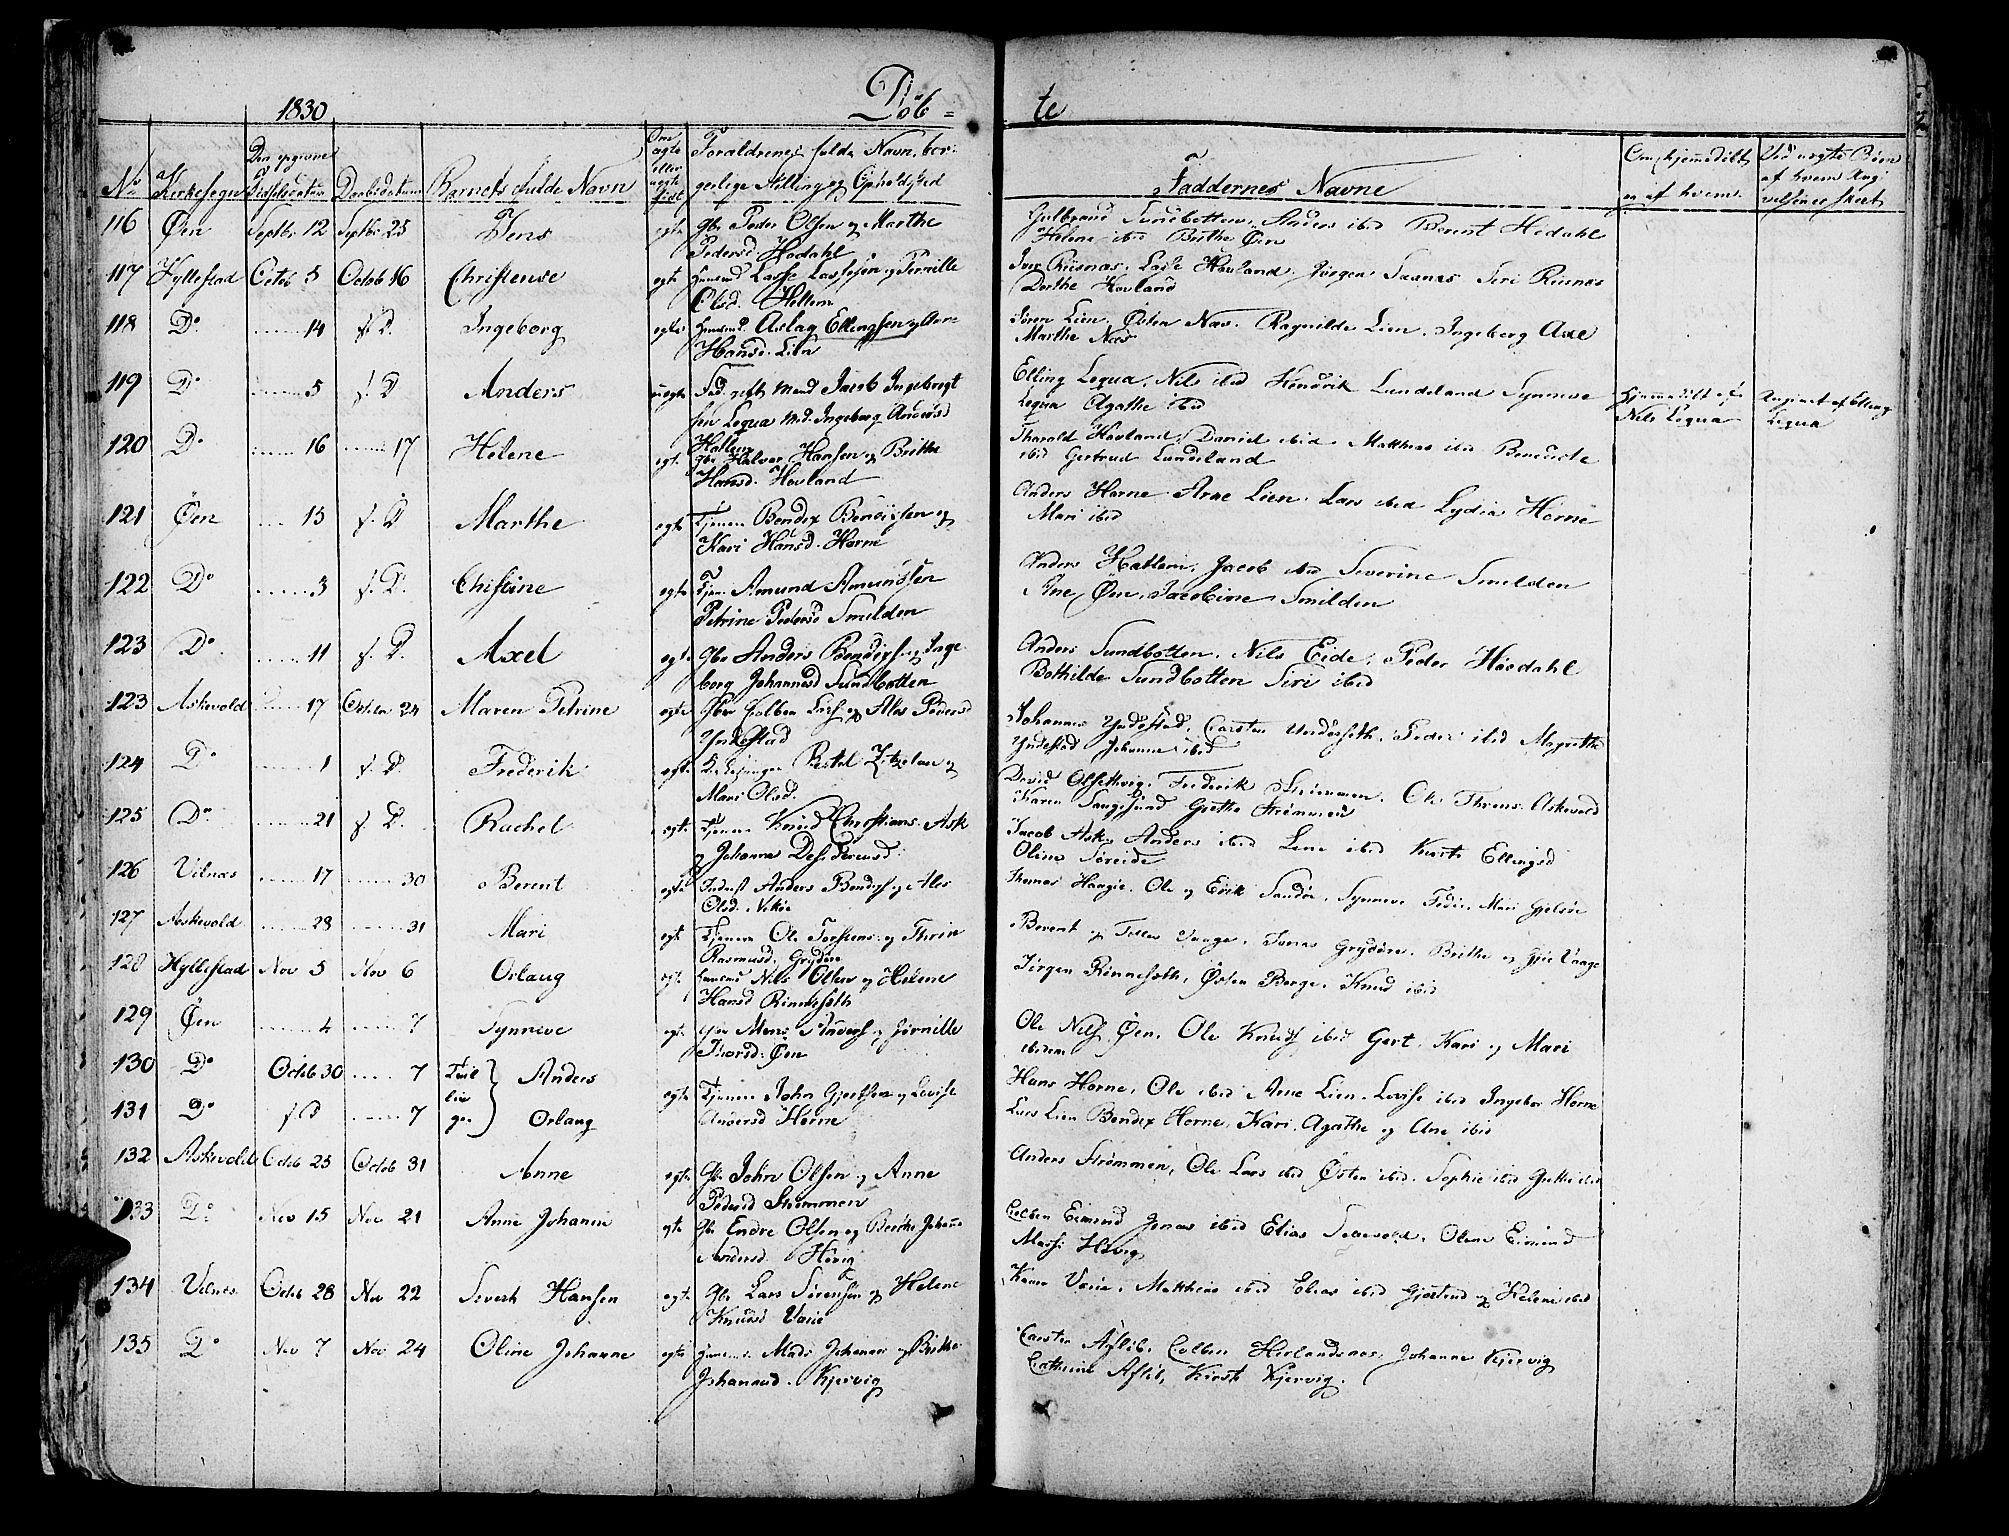 1830 Døb = te
No Kirkesogn Den opgivne Fødselsdatum Daabsdatum Barnets fulde Navn Om ægte eller uægte født Forældrenes fulde Navn, borgerlige Stilling og Opholdsted Faddernes Navne Om hjemmedøbt og af hvem Ved uægte Børn af hvem Angivelsen er skeet
116 Øen Septbr 12 Septbr 25 Jens egte Gbr Peder Olsen og Marthe
Pedersd Hodahl
Gulbrand Sundbotten, Anders ibid Berent Hodahl
Helene ibid Brithe Øen
117 Hyllestad Octob 5 Octob 16 Christense egte Huusmd Lasse Lassesen og Pernille
Olsd. Hellem
Iver Risnæs, Lasse Hovland, Jørgen Sasnæs Siri Risnæs
Dorthe Hovland
118 Do ...... 14 f. D. Ingeborg egte Huusmd. Aslag Ellingsen og
Hansd. Lien
Søren Lien, Østen Næs, Ragnilde Lien, Ingeborg Axe
Marthe Næs
119 Do ...... 5 f. D Anders uegte Fad. gift Mand Jacob Ingebrigt
sen Leqva Md. Ingeborg Andersd
Hatlem
Elling Leqva, Nils ibid Hendrik Lundeland Synneve
Leqva Agathe ibid
Hjemmedøbt af
Nils Leqva
Angivet af Elling
Leqva
120 Do ...... 16 ...... 17 Helene egt. Gbr Halvor Hansen og Brithe
Hansd. Hovland
Tharald Hovland, Daniel ibid Matthias ibid Benedicte
ibid Gertrud Lundeland
121 Øen .... 15 f. D Marthe egte Tjenere Bendix Bendixsen og
Kari Hansd. Horne
Anders Horne Arne Lien, Lars ibid Lydia Horne
Mari ibid
122 Do ...... 3 f. D. Chistine egte Tjen. Amund Amundsen
Petrine Pedersd Smilden
Anders Hatlem, Jacob ibid Severine Smilden
Ane Øen, Jacobine Smilden
123 Do ...... 11 f. D. Axel egte Gbr Anders Bendixs. og Inge
borg Johannesd Sundbotten
Anders Sundbotten, Nils Eide, Peder Hodahl
Bothilde Sundbotten Siri ibid
123 Askevold ...... 17 Octobr 24 Maren Petrine egte Gbr Colben Lass. og Ales Pedersd
Yndestad
Johannes Yndestad, Carsten Underseth, Peder ibid Magrethe
Yndestad Johanna ibid
124 Do ...... 1 f. D. Frederik egte Bertel Zitzelow og
Mari Olsd.
David Olsethvig, Frederik Strømmen, Ole Thrane Askevold
Karen Saugesund Grethe Strømmen
125 Do ...... 21 f. D. Rachel egte Tjenere Knud Christians. Ask
og Johanna Desideriusd.
Jacob Ask, Anders ibid Lene ibid Kirsti Ellingsd
Oline Søreide
126 Vilnæs ...... 17 ...... 30 Berent egte Anders Bendixs og Ales
Olsd. Nekøe
Thomas Haagøe, Ole og Erik Sandøe, Synneve Fedøe, Mari Gjelsøe
127 Askevold ...... 28 ...... 31 Mari egt Tjenere Ole Torstens. og Thrin
Rasmusd, Grydøre
Berent og Tollev Vaage, Jonas Grydøre, Brithe og Vaage
128 Hyllestad Nov 5 Nov 6 Orlaug egt Huusmd Nils Olsen og Helene
Hansd Rinneseth
Jørgen Rinneseth, Østen Berge, Knud ibid
129 Øen ...... 4 ...... 7 Synneve egt Gbr Mons Anders. og Pernille
Iversd: Øen
Ole Nilss Øen, Ole Knuds ibid Gert, Kari og Mari
ibidem
130 Do Octb 30 ..... 7 Tvil Anders
131 Do f D ...... 7 lin ger Orlaug egte Tjenere John Gjertsen og Lovise
Andersd Horne
Hans Horne, Ole ibid Anne Lien, Lovise ibid Ingebor Horne
Lars Lien Bendix Horne, Kari, Agathe og Ane ibid
132 Askevold Octb 25 Octob 31 Anne egte Gbr John Olsen og Anne
Pedersd Strømmen
Anders Strømmen, Ole Lars ibid Østen ibid, Sophie ibid Grethe ibid
133 Do Nov 15 Nov 21 Anne Johanne egte Gbr Endre Olsen og Berthe Johanne
Andersd. Hovig
Colben Eimind Jonas ibid Elias Oline Eimind
Massi Hovig
134 Vilnes Octb 28 Nov 22 Sivert Hansen egte Gbr Lars Sørensen og Helene
Knudsd Værøe
Værøe, Matthias ibid Elias ibid Gjertrud og Helene ibid
135 Do Nov 7 Nov 24 Oline Johanne egte Huusmd. Mads Johannes. og Brithe
Johannesd. Kjervig
Carsten Asfled, Colben Herlandsnæs, Johanne Kjervig
Cathrine Asfled, Kirsti Kjervig.